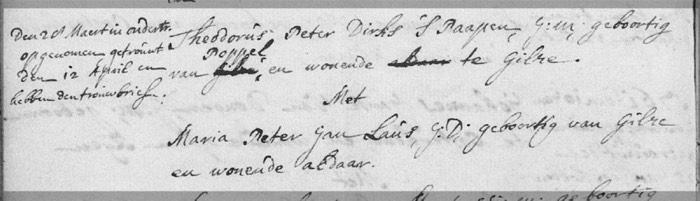 Den 28 Maert in ondertr.
opgenomen getrouwt
den 12 April en
hebben den trouwbrief.
Theodorus Peter Dirks 'S Raapen, J:m: geboortig
Poppel
van Gilze, en wonende aldaar te Gilze.
Met
Maria Peter Jan Laus, J:D: geboortig van Gilze
en wonende aldaar.
geboortig